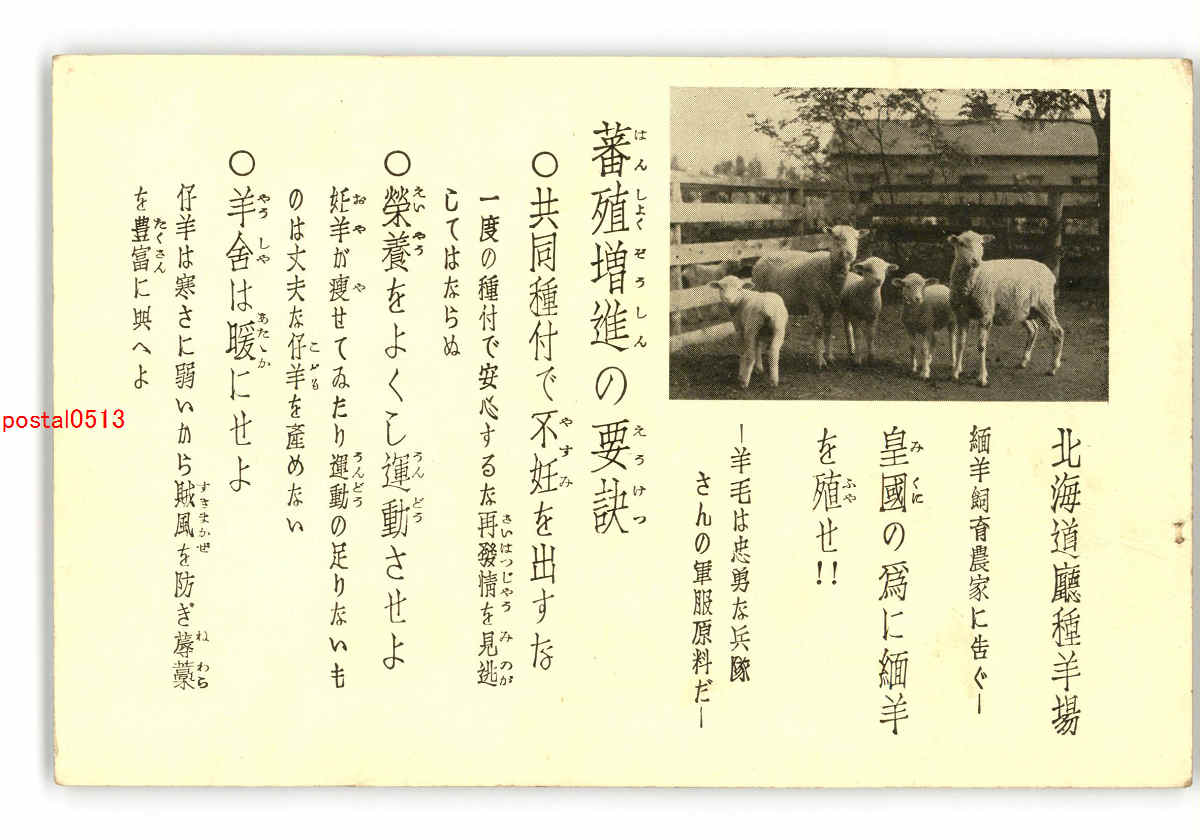 北海道廳種羊場
緬羊飼育農家に告ぐ―
皇國の爲に緬羊
を殖せ!!
―羊毛は忠勇な兵隊
さんの軍服原料だ―
蕃殖増進の要訣
○共同種付で不妊を出すな
一度の種付で安心するな再發情を見逃
してはならぬ
○榮養をよくし運動させよ
妊羊が瘦せてゐたり運動の足りないも
のは丈夫な仔羊を產めない
○羊舍は暖にせよ
仔羊は寒さに弱いから賊風を防ぎ蓐藁
を豊富に與へよ
postal0513